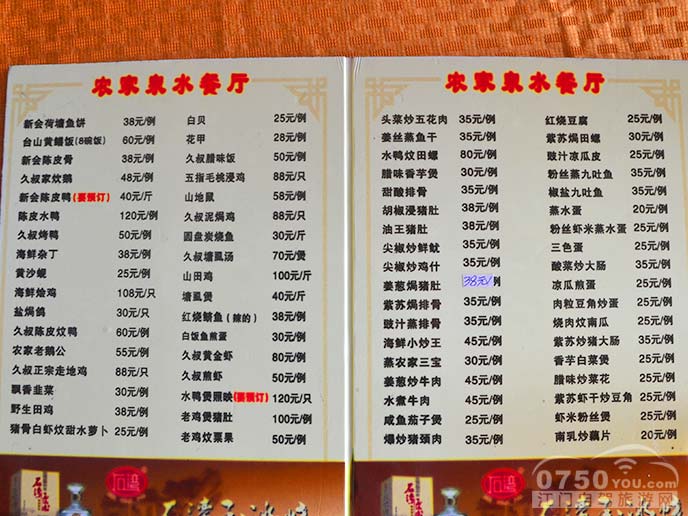 农家泉水餐厅
新会荷塘鱼饼 38元/例
台山黄鳝饭(8碗饭) 60元/例
新会陈皮骨 38元/例
久叔家炊鹅 48元/例
新会陈皮鸭(要预订) 40元/斤
陈皮水鸭 120元/例
久叔烤鸭 50元/例
海鲜杂丁 38元/例
黄沙蚬 25元/例
海鲜烩鸡 108元/只
盐焗鸽 30元/只
久叔陈皮炆鸭 60元/例
农家老鹅公 55元/例
久叔正宗走地鸡 88元/只
飘香韭菜 30元/例
野生田鸡 38元/例
猪骨白虾炆甜水萝卜 25元/例
白贝 25元/例
花甲 28元/例
久叔腊味饭 50元/例
五指毛桃浸鸡 88元/只
山地鼠 58元/例
久叔泥焗鸡 88元/只
圆盘炭烧鱼 30元/例
久叔塘虱汤 70元/煲
山田鸡 100元/斤
塘虱煲 40元/斤
红烧鲮鱼(辣的) 38元/例
白饭鱼煎蛋 30元/例
久叔黄金虾 80元/例
久叔煎虾 50元/例
水鸭煲照映(要预订) 120元/只
老鸡煲猪肚 100元/例
老鸡炆粟果 50元/例
石湾
农家泉水餐厅
头菜炒五花肉 35元/例
姜丝蒸鱼干 35元/例
水鸭炆田螺 80元/例
腊味香芋煲 30元/例
甜酸排骨 35元/例
胡椒浸猪肚 38元/例
油王猪肚 38元/例
尖椒炒鲜鱿 35元/例
尖椒炒鸡什 35元/例
姜葱焗猪肚 38元/例
紫苏焗排骨 35元/例
豉汁蒸排骨 35元/例
海鲜小炒王 45元/例
蒸农家三宝 30元/例
姜葱炒牛肉 45元/例
水煮牛肉 45元/例
咸鱼茄子煲 25元/例
爆炒猪颈肉 35元/例
红烧豆腐 25元/例
紫苏焗田螺 30元/例
豉汁凉瓜皮 25元/例
粉丝蒸九吐鱼 35元/例
椒盐九吐鱼 35元/例
蒸水蛋 20元/例
粉丝虾米蒸水蛋 25元/例
三色蛋 25元/例
酸菜炒大肠 35元/例
凉瓜煎蛋 25元/例
肉粒豆角炒蛋 25元/例
烧肉炆南瓜 25元/例
紫苏炒猪大肠 35元/例
香芋白菜煲 25元/例
腊味炒菜花 25元/例
紫苏虾干炒豆角 25元/例
虾米粉丝煲 25元/例
南乳炒藕片 20元/例
石湾
0750YOU.com
江门自驾旅游网